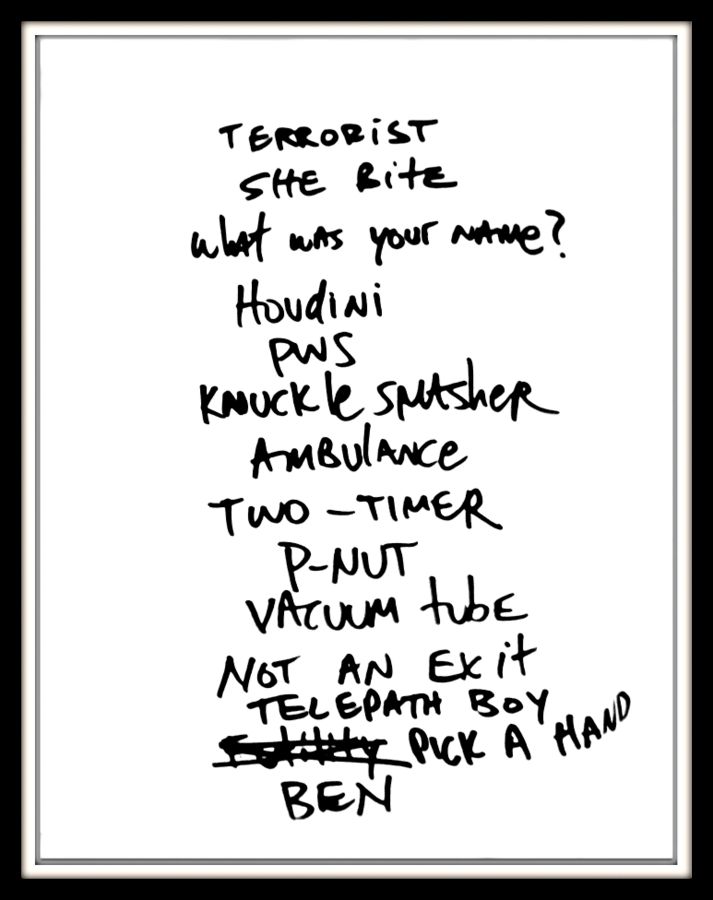 TERRORiST
SHE BitE
WhAt WAS YOUR NAMe?
HoudiNi
PWS
KNUCKle SMAShER
AMBUlANCe
TWO-TIMER
P-NUT
VACUUM tubE
NOT AN EXit
TELEPATH BOY
PICK A HAND
BEN